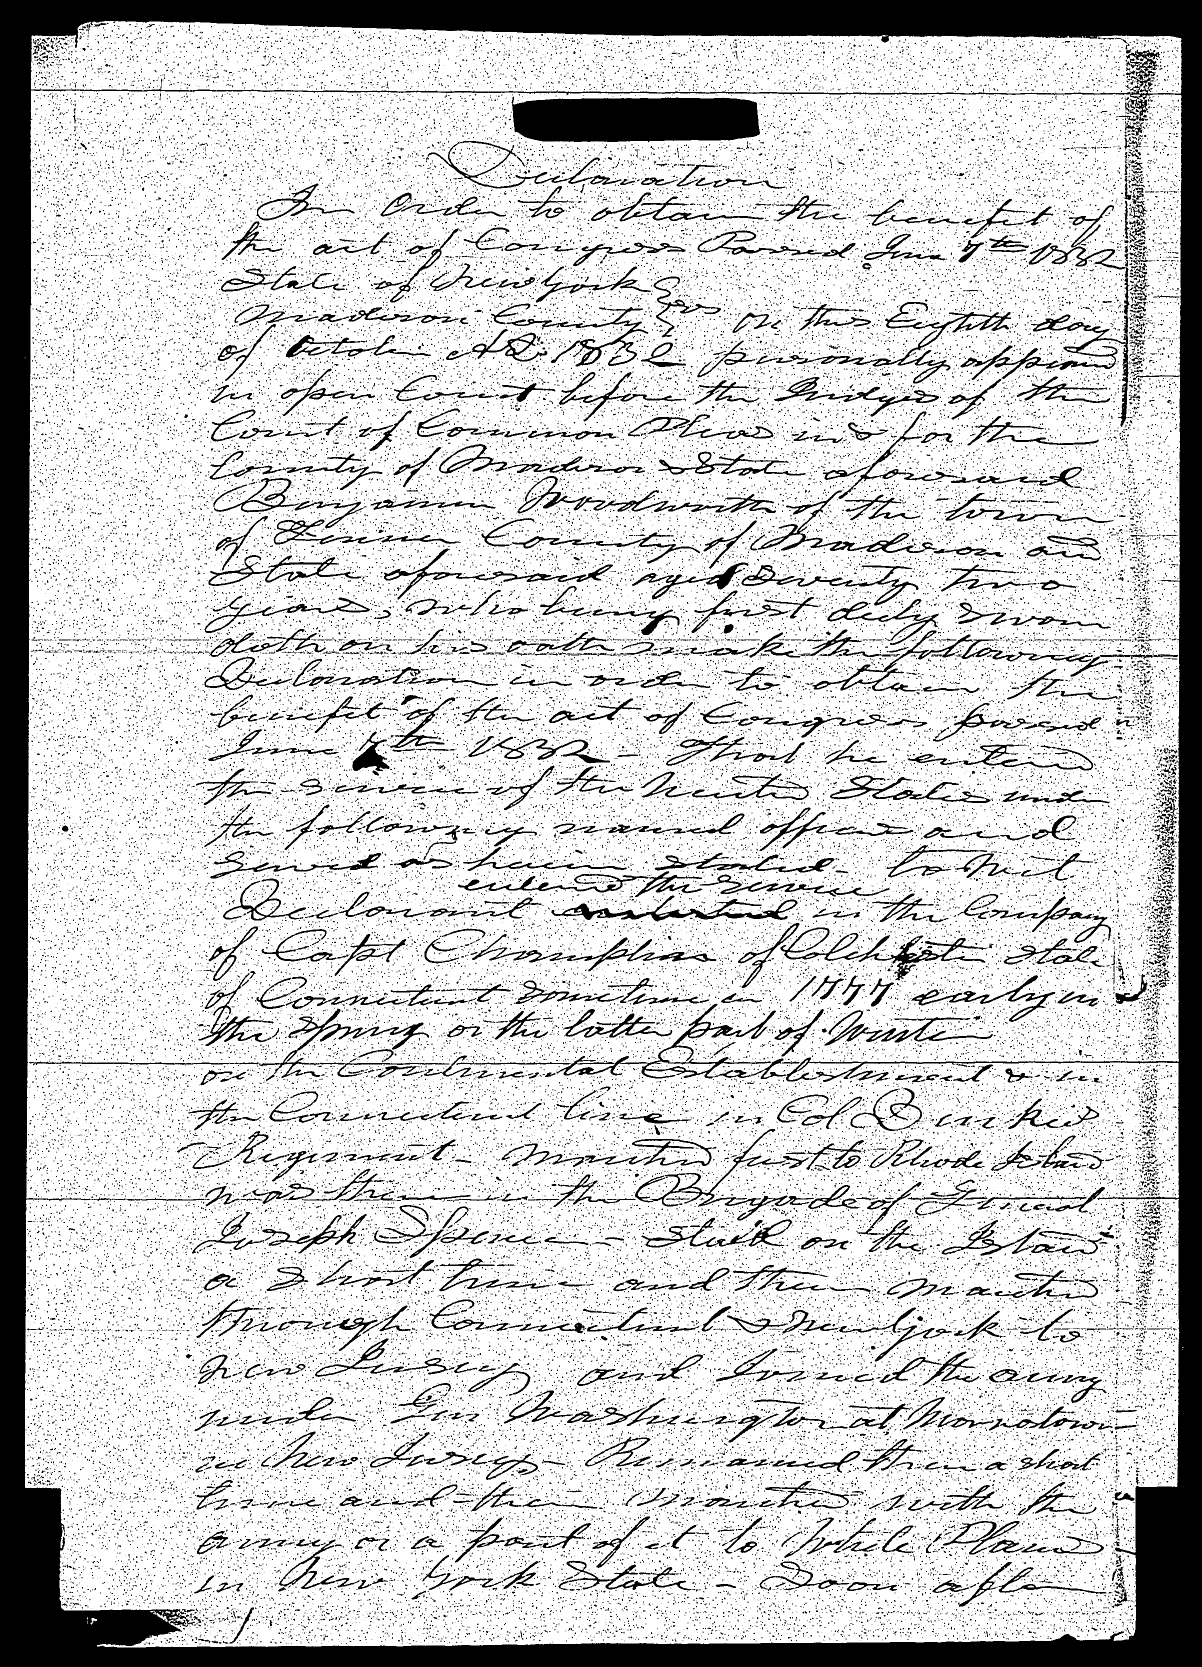 Declaration
In Order to obtain the benefit of
the act of Congress Passed June 7th 1832
State of New York }
Madison County } ss On this Eighth day
of October AD. 1832 personally appeared
in open Court before the Judges of the
Court of Common Pleas in & for the
County of Madison & State aforesaid
Benjamin Woodworth of the town
of Fenner County of Madison and
State aforesaid aged Seventy two
years, who being first duly sworn
doth on his oath make the following
Declaration in order to obtain the
benefit of the act of Congress passed
June 7th 1832 - That he entered
the service of the United States under
the following named officers and
served as herein stated - to wit
entered the service
Declarant enlisted in the Company
of Capt Champlin of Colchester State
of Connecticut sometime in 1777 early in
the Spring or the latter part of Winter
on the Continental Establishment & in
the Connecticut line in Col
Regiment - marched first to Rhode Island
was there in the Brigade of General
Joseph Spencer - Staid on the Island
a short time and then marched
through Connecticut & New York to
New Jersey and Joined the army
under Gen Washington at Morristown
in New Jersey - Remained there a short
time and then marched with the
army or a part of it to White Plains
in New York State - Soon after